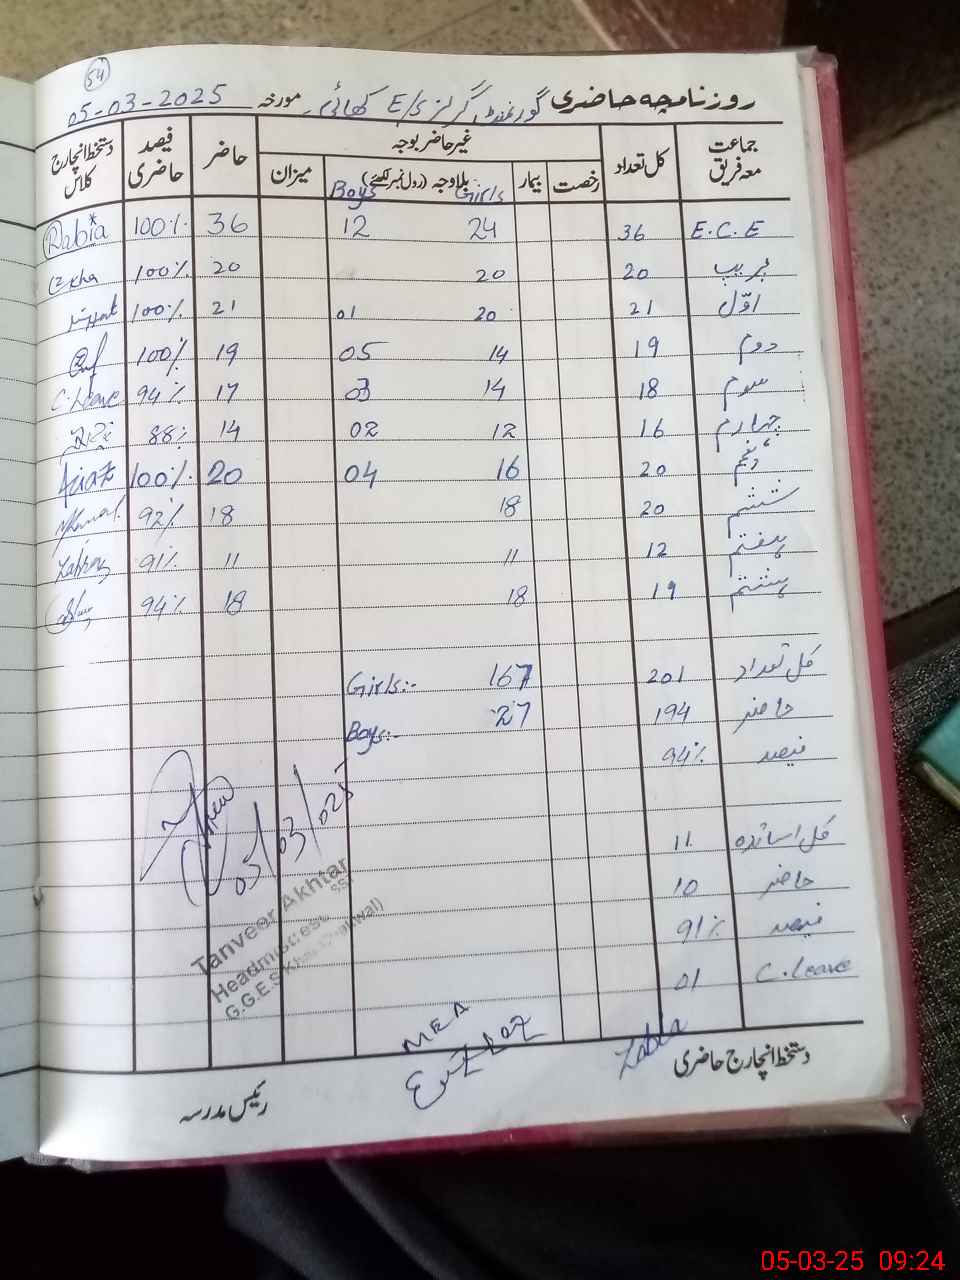 54
روزنامچہ حاضری گورنمنٹ گرلز E/S کھائی مورخہ 05-03-2025
جماعت معہ فریق کل تعداد غیر حاضر بوجہ حاضر فیصد حاضری دستخط انچارج کلاس
رخصت بیمار بلاوجہ (رول نمبر لکھئے) میزان
Boys Girls
E.C.E 36 24 12 36 100% Rabia
پریپ 20 20 20 100%
اوّل 21 20 01 21 100%
دوم 19 14 05 19 100%
سوم 18 14 03 17 94% C.Leave
چہارم 16 12 02 14 88%
پنجم 20 16 04 20 100%
ششم 20 18 18 92%
ہفتم 12 11 11 91%
ہشتم 19 18 18 94%
کل تعداد 201 Girls:- 167
حاضر 194 Boys:- 27
فیصد 94%
کل اساتذہ 11
حاضر 10
فیصد 91%
C.Leave 01
05/03/025
Tanveer Akhtar
Headmistress SST
G.G.E.S
MEA
دستخط انچارج حاضری
رئیس مدرسہ
05-03-25 09:24